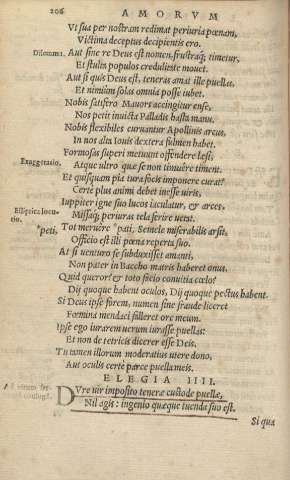 206 AMORVM
Vt sua per nostram redimat periuria pœnam,
Victima deceptus decipientis ero.
Dilemma. Aut sine re Deus est nomen, frustraq; timetur,
Et stulta populos credulitate mouet.
Aut si quis Deus est, teneras amat ille puellas,
Et nimium solas omnia posse iubet.
Nobis fatifero Mauors accingitur ense,
Nos petit inuicta Palladis hasta manu.
Nobis flexibiles curuantur Apollinis arcus,
In nos alta Iouis dextera fulmen habet.
Formosas superi metuunt offendere læsi,
Exaggeratio. Atque ultro quæ se non timuere timent.
Et quisquam pia tura focis imponere curat?
Certe plus animi debet inesse uiris.
Iuppiter igne suo lucos iaculatur, & arces,
Missaq; periuras tela ferire uetat.
Elliptica locu-
tio. Tot meruere °pati, Semele miserabilis arsit,
°peti, Officio est illi pœna reperta suo.
At si uenturo se subduxisset amanti,
Non pater in Baccho matris haberet onus.
Quid queror? & toto facio conuitia cœlo?
Dij quoque habent oculos, Dij quoque pectus habent.
Si Deus ipse forem, numen sine fraude liceret
Fœmina mendaci falleret ore meum.
Ipse ego iurarem uerum iurasse puellas:
Et non de tetricis dicerer esse Deis.
Tu tamen illorum moderatius utere dono,
Aut oculis certe parce puella meis.
ELEGIA IIII.
DVre uir imposito teneræ custode puellæ,
Nil agis: ingenio quæque tuenda suo est.
Si qua